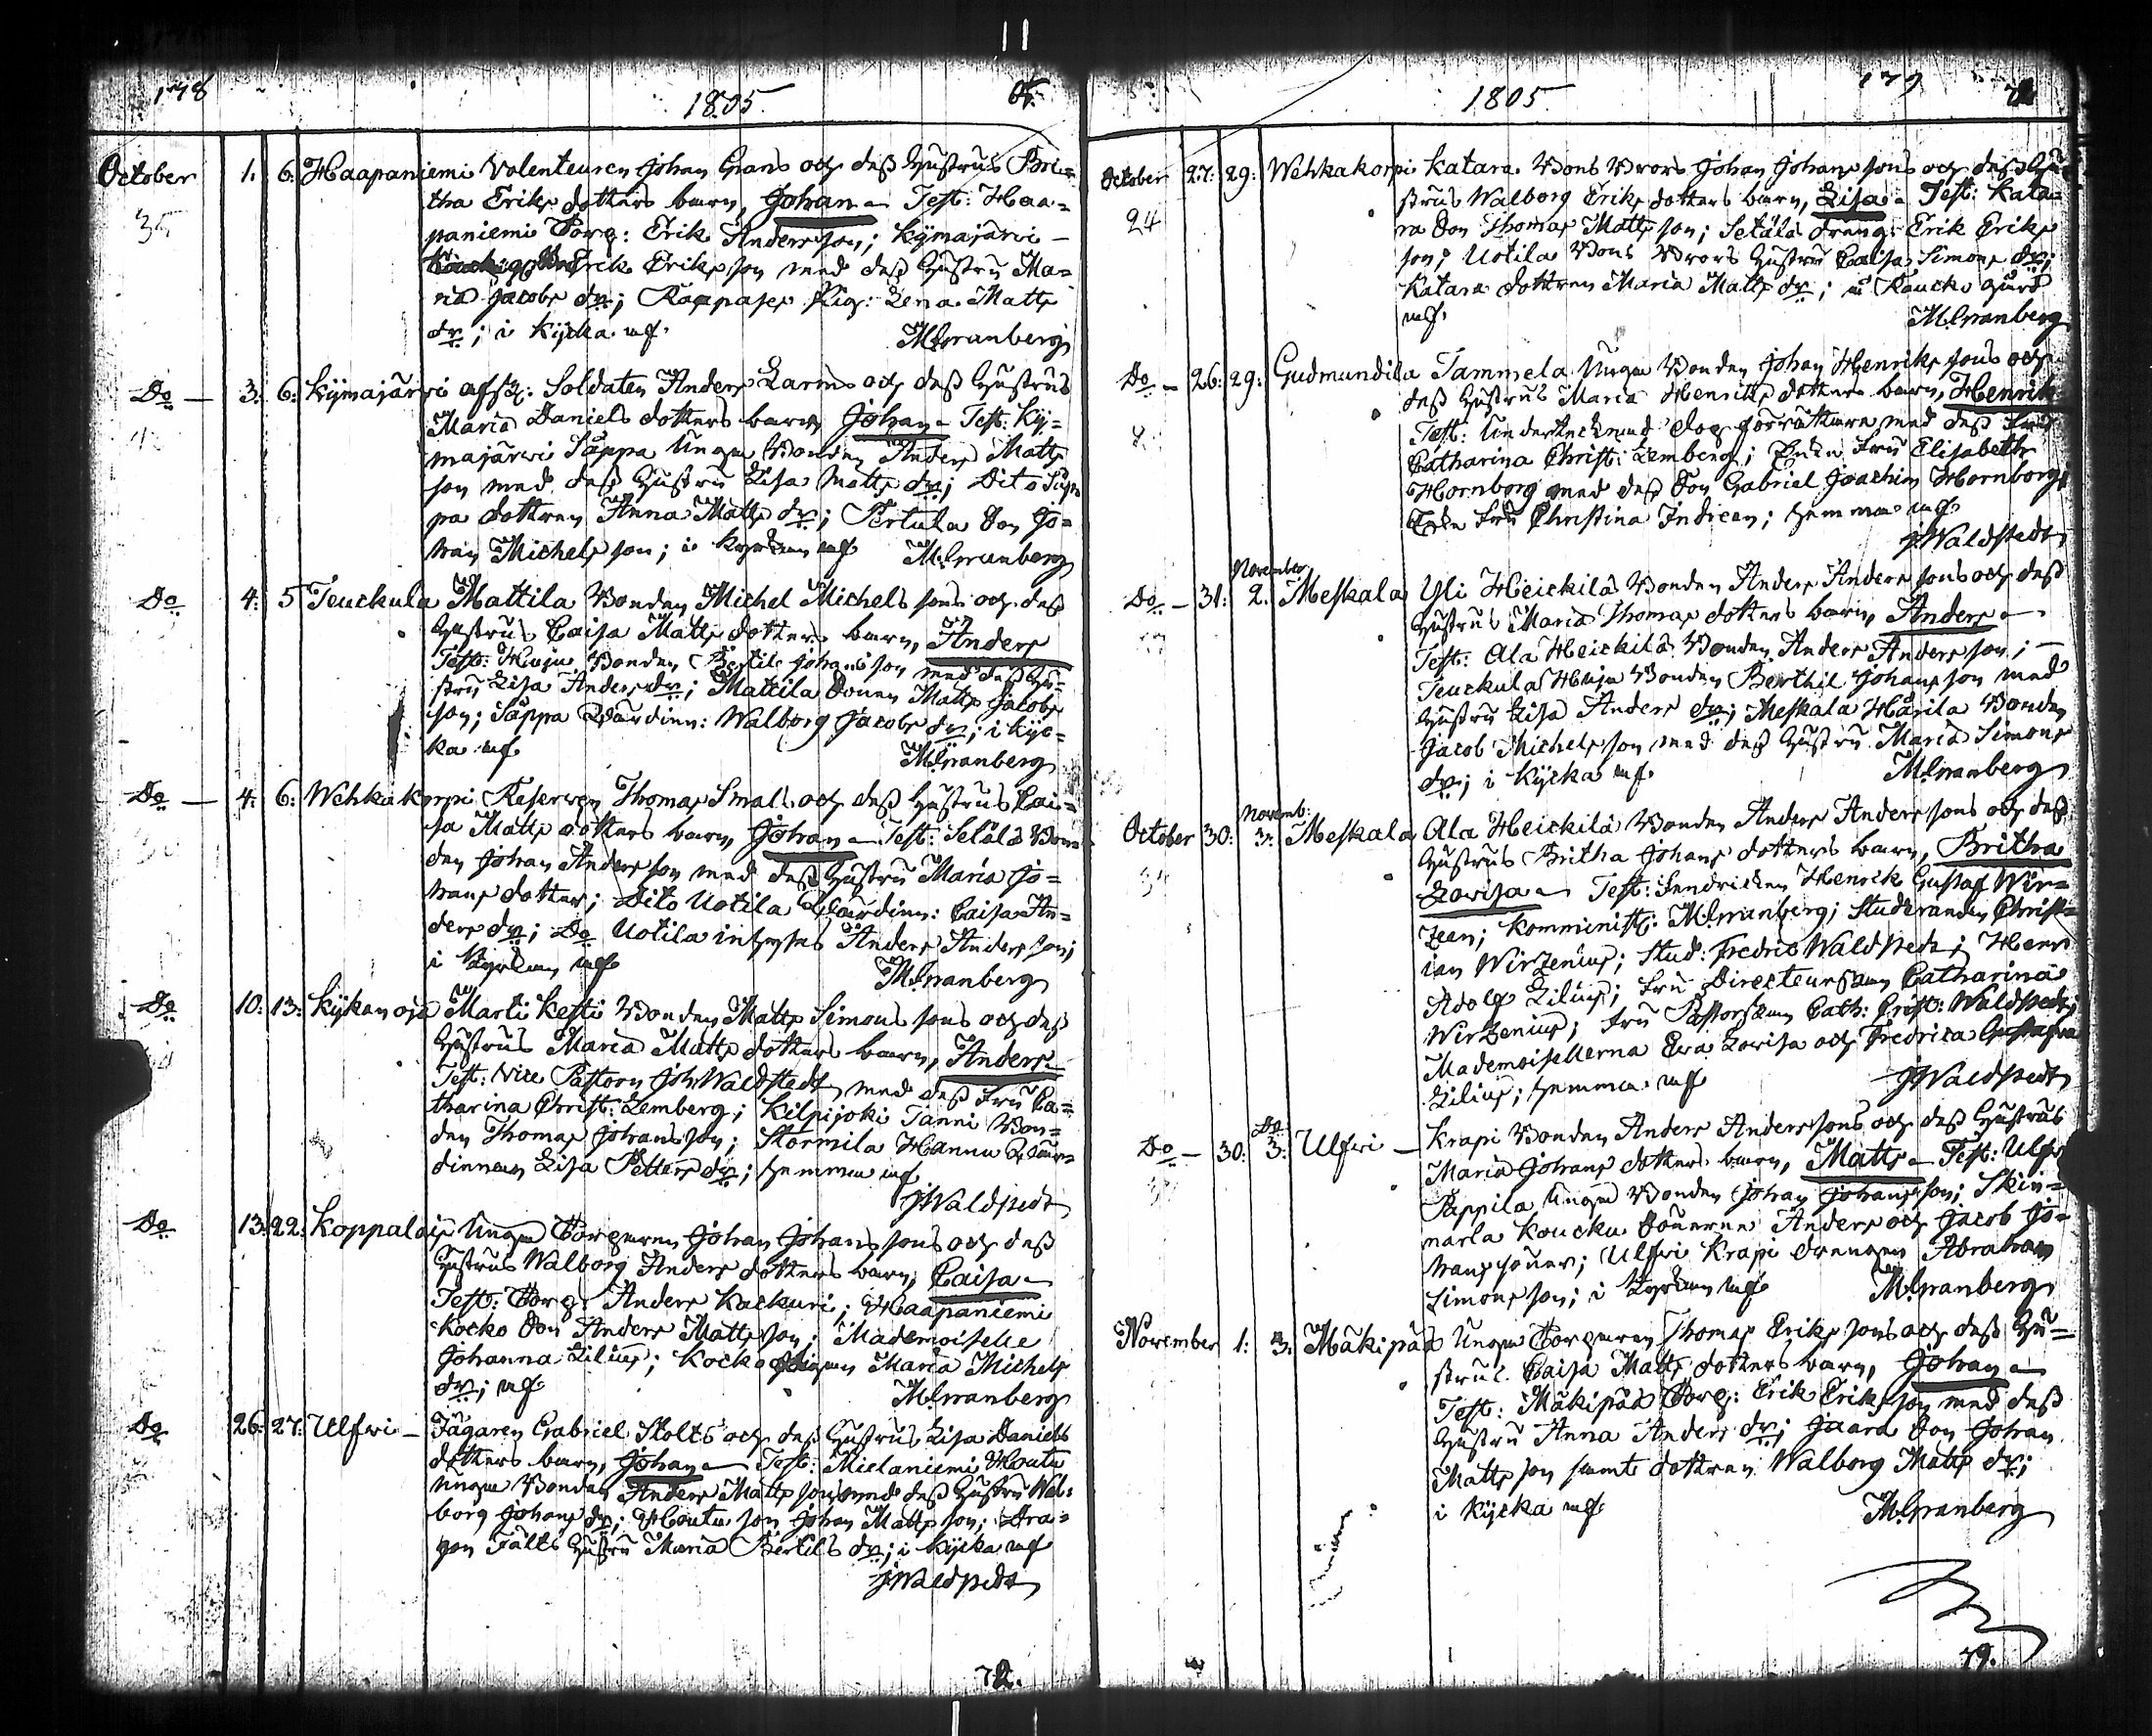 178
1805.
October 1. 6. Haapaniemi Volenteuren Johan Grans och deß Hustrus Bri=
35
tha Eriks dotters barn, Johan - Test: Haa=
paniemi Torp: Erik Andersson; Kÿmajärvi -
Erik Eriks son med deß Hustru Ma=
ria Jacobs dr; Pig: Lena Matts
dr; i Kÿcka
MGranberg
Do - 3: 6: Kÿmajärwi afsk: Soldaten Anders Larms och deß Hustrus
Maria Daniels dotters barn, Johan - Test: Kÿ=
majärwi Säppa Unga Bonden Anders Matts
son med deß Hustru Lisa Matts dr; Dito Säp
pa dottren Anna Matts dr; Pertula Son Jo=
han Michels son; i
MGranberg
Do 4: 5 Teuckula Mattila Bonden Michel Michels sons och deß
Hustrus Caisa Matts dotters barn, Anders
Test: Huju Bonden Bertil Johans son med deß Hu=
stru Lisa Anders dr; Mattila Sonen Matts Jacobs
son; Säppa Wärdinn: Walborg Jacobs dr; i Kÿc=
ka
MGranberg
Do - 4: 6: Wehkakorpi Reserven Thomas Smals och deß Hustrus Cai=
sa Matts dotters barn, Johan - Test: Setälä Bon=
den Johan Anders son med deß Hustru Maria Jo=
hans dotter; Dito Uotila Wärdinn: Caisa An=
ders dr; Do Uotila inhyses Anders Anders son;
i
MGranberg
Do 10: 13: Kÿkänoja Marti Kesti Bonden Matts Simons sons och deß
Hustrus Maria Matts dotters barn, Anders -
Test: Vice Pastorn Joh: Waldstedt med deß Fru Ca=
tharina Christ: Lemberg; Kilpijoki Tanni Bon=
den Thomas Johans son; Stormila Hannu Wär=
dinnan Lisa Petters dr; hemma
JWaldstedt
Do 13: 22: Koppalais Unga Torparen Johan Johans sons och deß
Hustrus Walborg Anders dotters barn, Caisa -
Test: Torp: Anders Kackuri; Haapaniemi
Kocko Son Anders Matts son; Mademoiselle
Johanna Lilius; Kocko Pigan Maria Michels
dr;
MGranberg
Do 26: 27: Ulfwi - Jägaren Gabriel Stolts och deß Hustrus Lisa Daniels
dotters barn, Johan - Test: Mielaniemi Houtu
Unga Bonden Anders Matts son med deß Hustru Wal=
borg Johans dr; Houtu son Johan Matts son; Dra=
gon Fälts Hustru Maria Bertils dr; i Kÿcka
JWaldstedt
72.
179
1805
October 27: 29: Wehkakorpi Katara Bons Brors Johan Johans sons och deß Hu
24
strus Walborg Eriks dotters barn, Lisa - Test: Kata=
ra Son Thomas Matts son; Setälä Dreng: Erik Eriks
son; Uotila Bons Brors Hustru Caisa Simons dr;
Katara dottren Maria Matts dr; Raucko gård
MGranberg
Do - 26: 29: Gudmundila Tammela Unga Bonden Johan Henriks sons och
8
deß Hustrus Maria Henriks dotters barn, Henrik
Test: Undertecknad med deß Fru
Catharina Christ: Lemberg; Enke Fru Elisabeth
Hornborg med deß Son Gabriel Joachim Hornborg;
Enke Fru Christina Indreen; hemma
JWaldstedt
November
Do - 31: 2. Meskala Yli Heickilä Bonden Anders Anders sons och deß
Hustrus Maria Thomas dotters barn, Anders -
Test: Ala Heickilä Bonden Anders Anders son; -
Teuckula Huju Bonden Berthil Johans son med
Hustru Lisa Anders dr; Meskala Härila Bonden
Jacob Michels son med deß Hustru Maria Simons
dr; i Kÿcka
MGranberg
Novemb:
October 30: 3: Meskala Ala Heickilä Bonden Anders Anders sons och deß
34
Hustrus Britha Johans dotters barn, Britha
Lovisa - Test: Fendricken Henrik Gustaf Wir=
zeen; Komminist: MGranberg; Studeranden Christ=
ian Wirzenius; Stud: Fredric Waldstedt; Herr
Adolf Lilius; Fru Directeurskan Catharina
Wirzenius; Fru Pastorskan Cath: Crist: Waldstedt;
Mademoisellerna Eva Lovisa och Fredrica Gustafva
Lilius; hemma
JWaldstedt
Do
Do - 30: 3: Ulfwi - Krapi Bonden Anders Anders sons och deß Hustrus
Maria Johans dotters barn, Matts - Test: Ulfwi
Pappila Unga Bonden Johan Johans son; Skin=
narla Koucku Sönerne Anders och Jacob Jo=
hans söner; Ulfwi Krapi Drengen Abraham
Simons son; i
MGranberg
November 1: 3: Mäkipää Unga Torparen Thomas Eriks sons och deß Hu=
strus Caisa Matts dotters barn, Johan -
Test: Mäkipää Torp: Erik Eriks son med deß
Hustru Anna Anders dr; Jaara Son Johan
Matts son samt dottren Walborg Matts dr;
i Kÿcka
MGranberg
79.